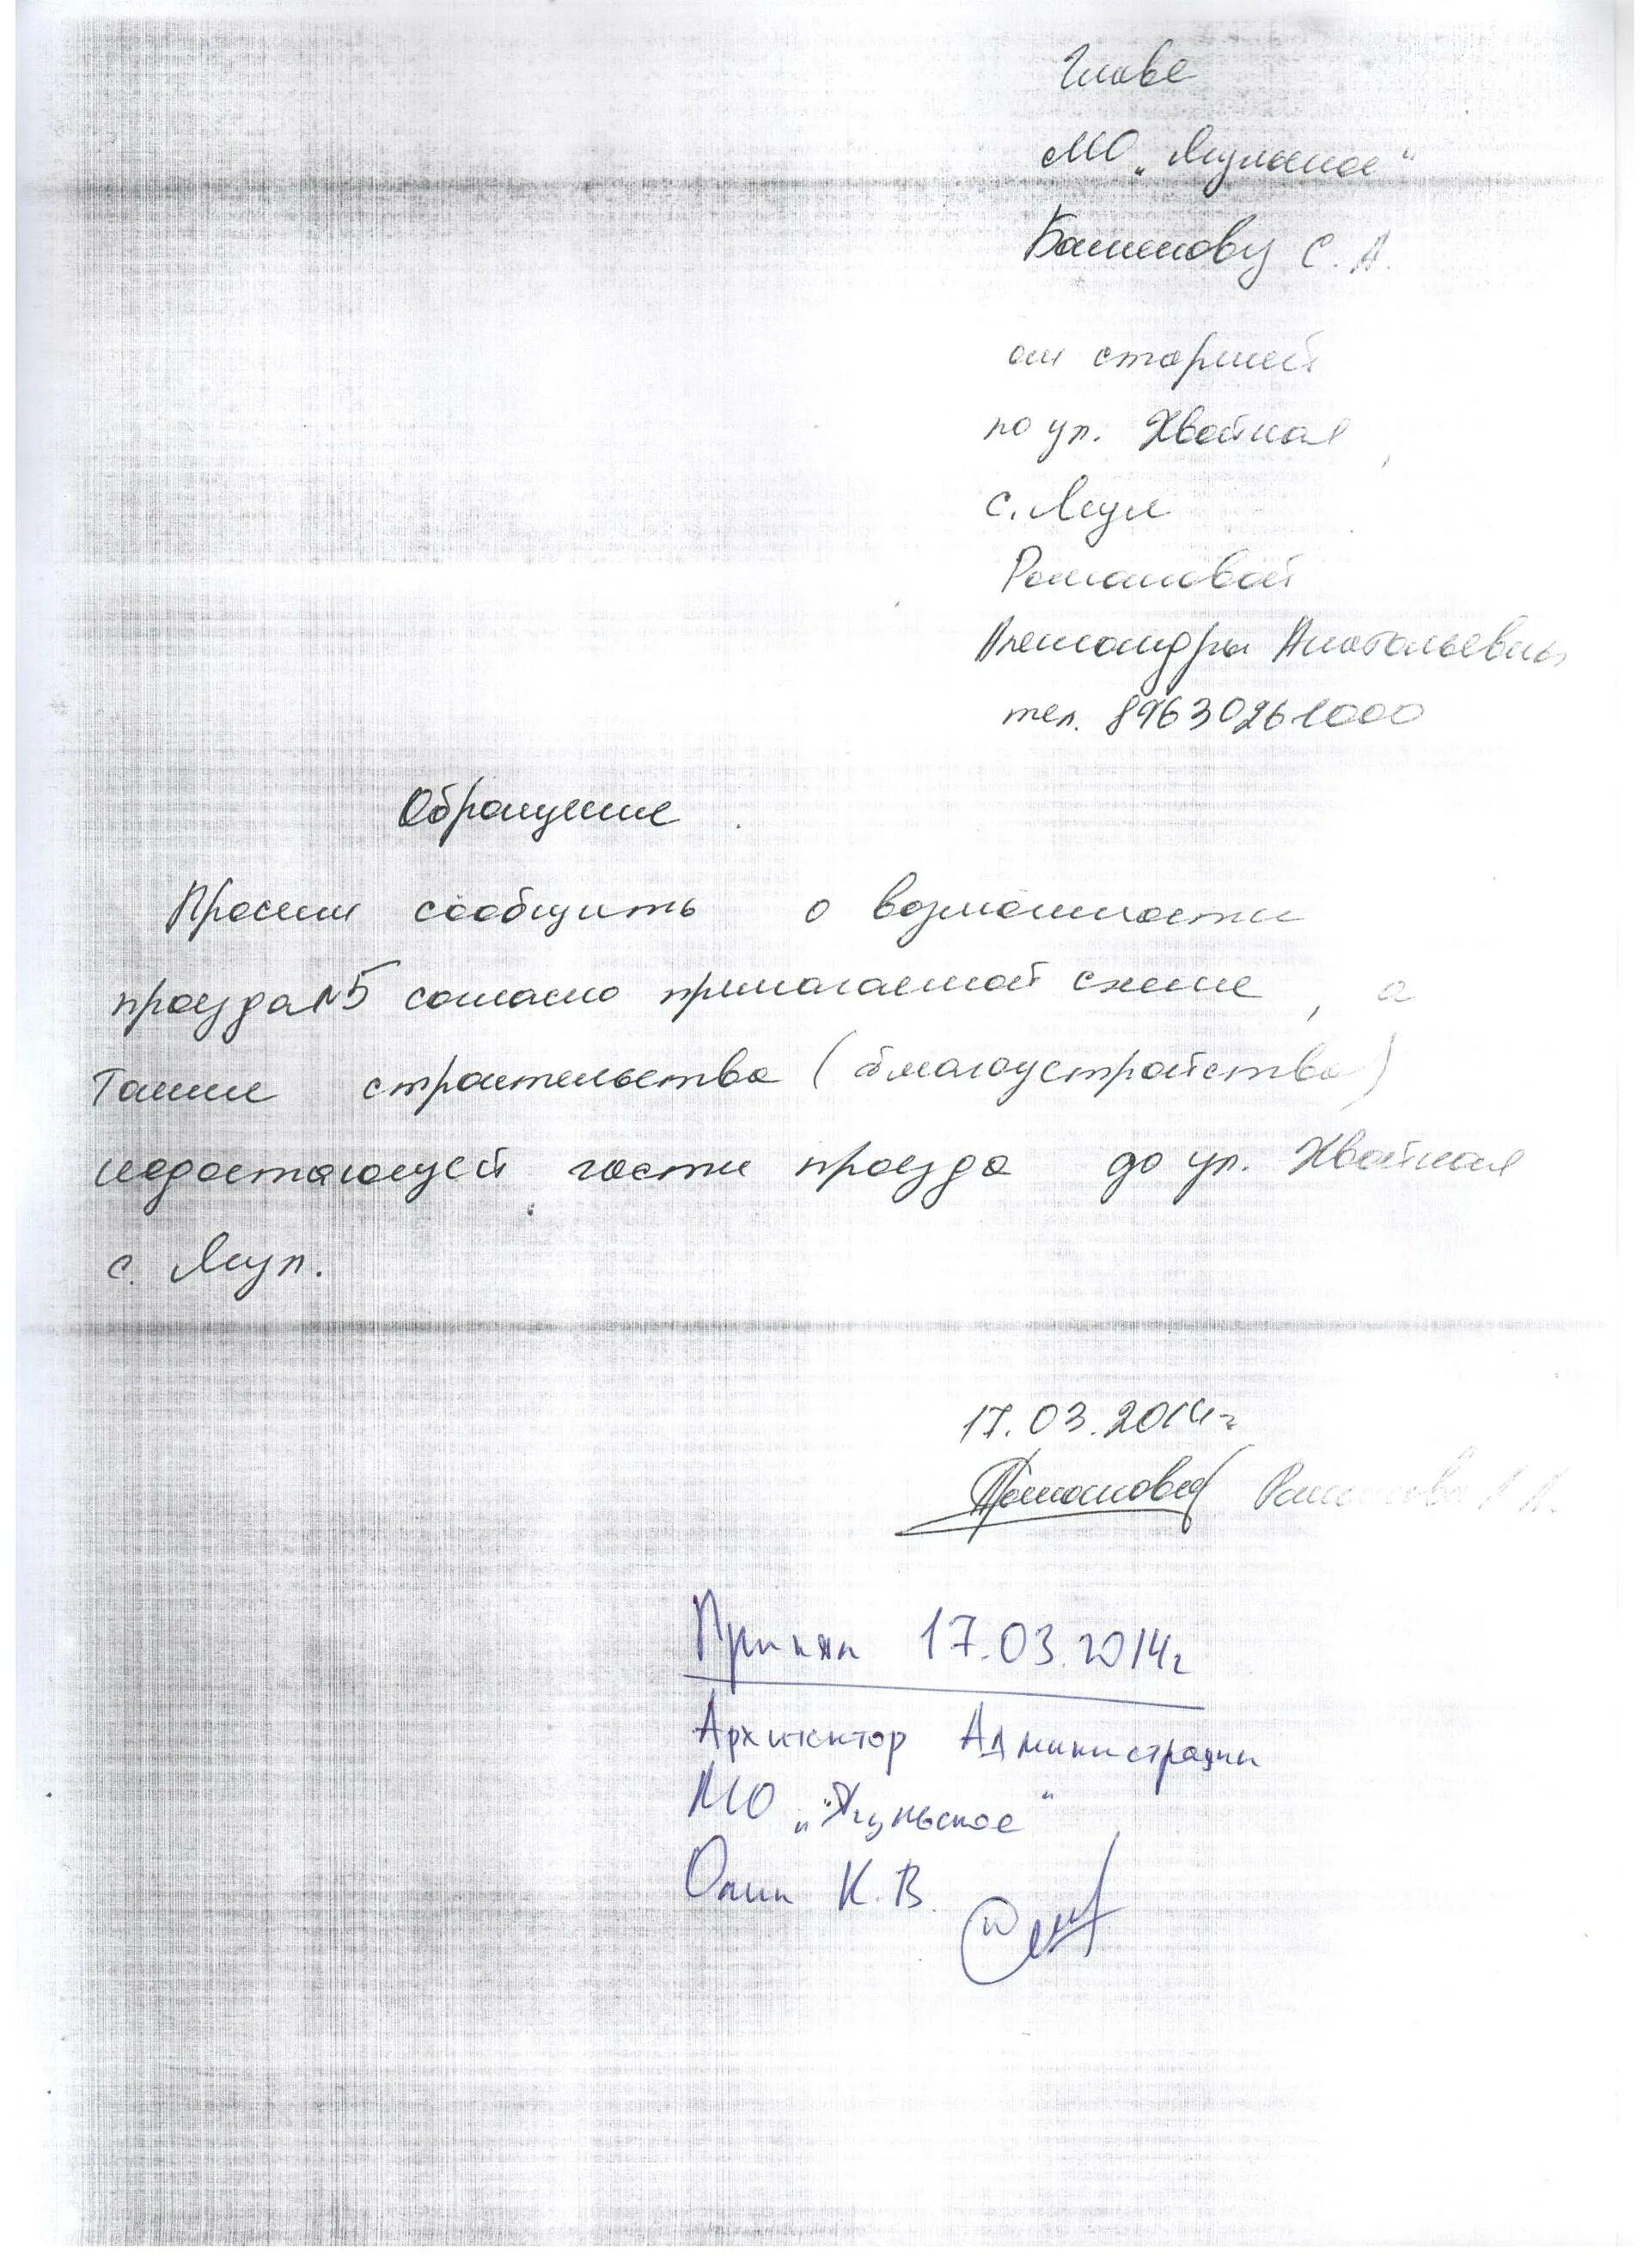 Главе
МО „Ягульское"
Баженову С. А.
от старшей
по ул. Хвойная,
с. Ягул
Романовой
Александры Анатольевны
тел. 89630261000
Обращение.
Просим сообщить о возможности
проезда №5 согласно прилагаемой схеме, а
также строительства (благоустройства)
недостающей части проезда до ул. Хвойная
с. Ягул.
17.03.2014г
Романова Романова А. А.
Принял 17.03.2014г
Архитектор Администрации
МО „Ягульское"
К.В.